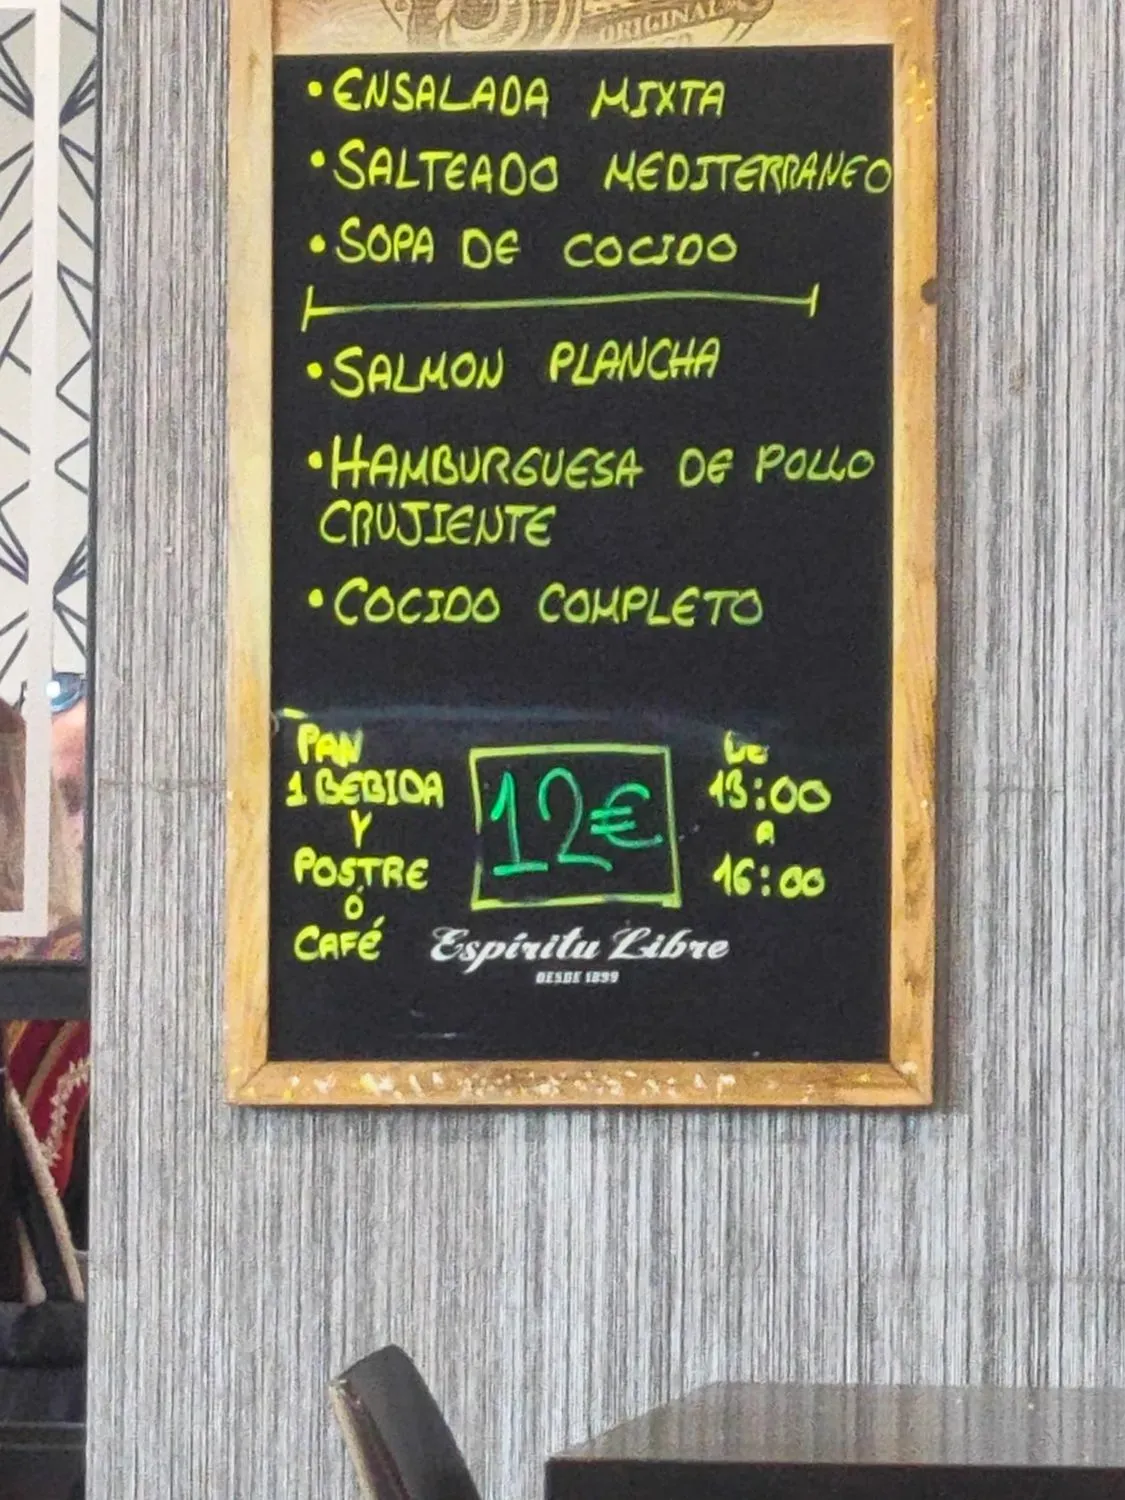 ORIGINAL
• ENSALADA MIXTA
• SALTEADO MEDITERRANEO
• SOPA DE COCIDO
• SALMON PLANCHA
• HAMBURGUESA DE POLLO
CRUJIENTE
• COCIDO COMPLETO
PAN
1 BEBIDA
Y
POSTRE
Ó
CAFÉ
12€
DE
13:00
A
16:00
Espíritu Libre
DESDE 1899